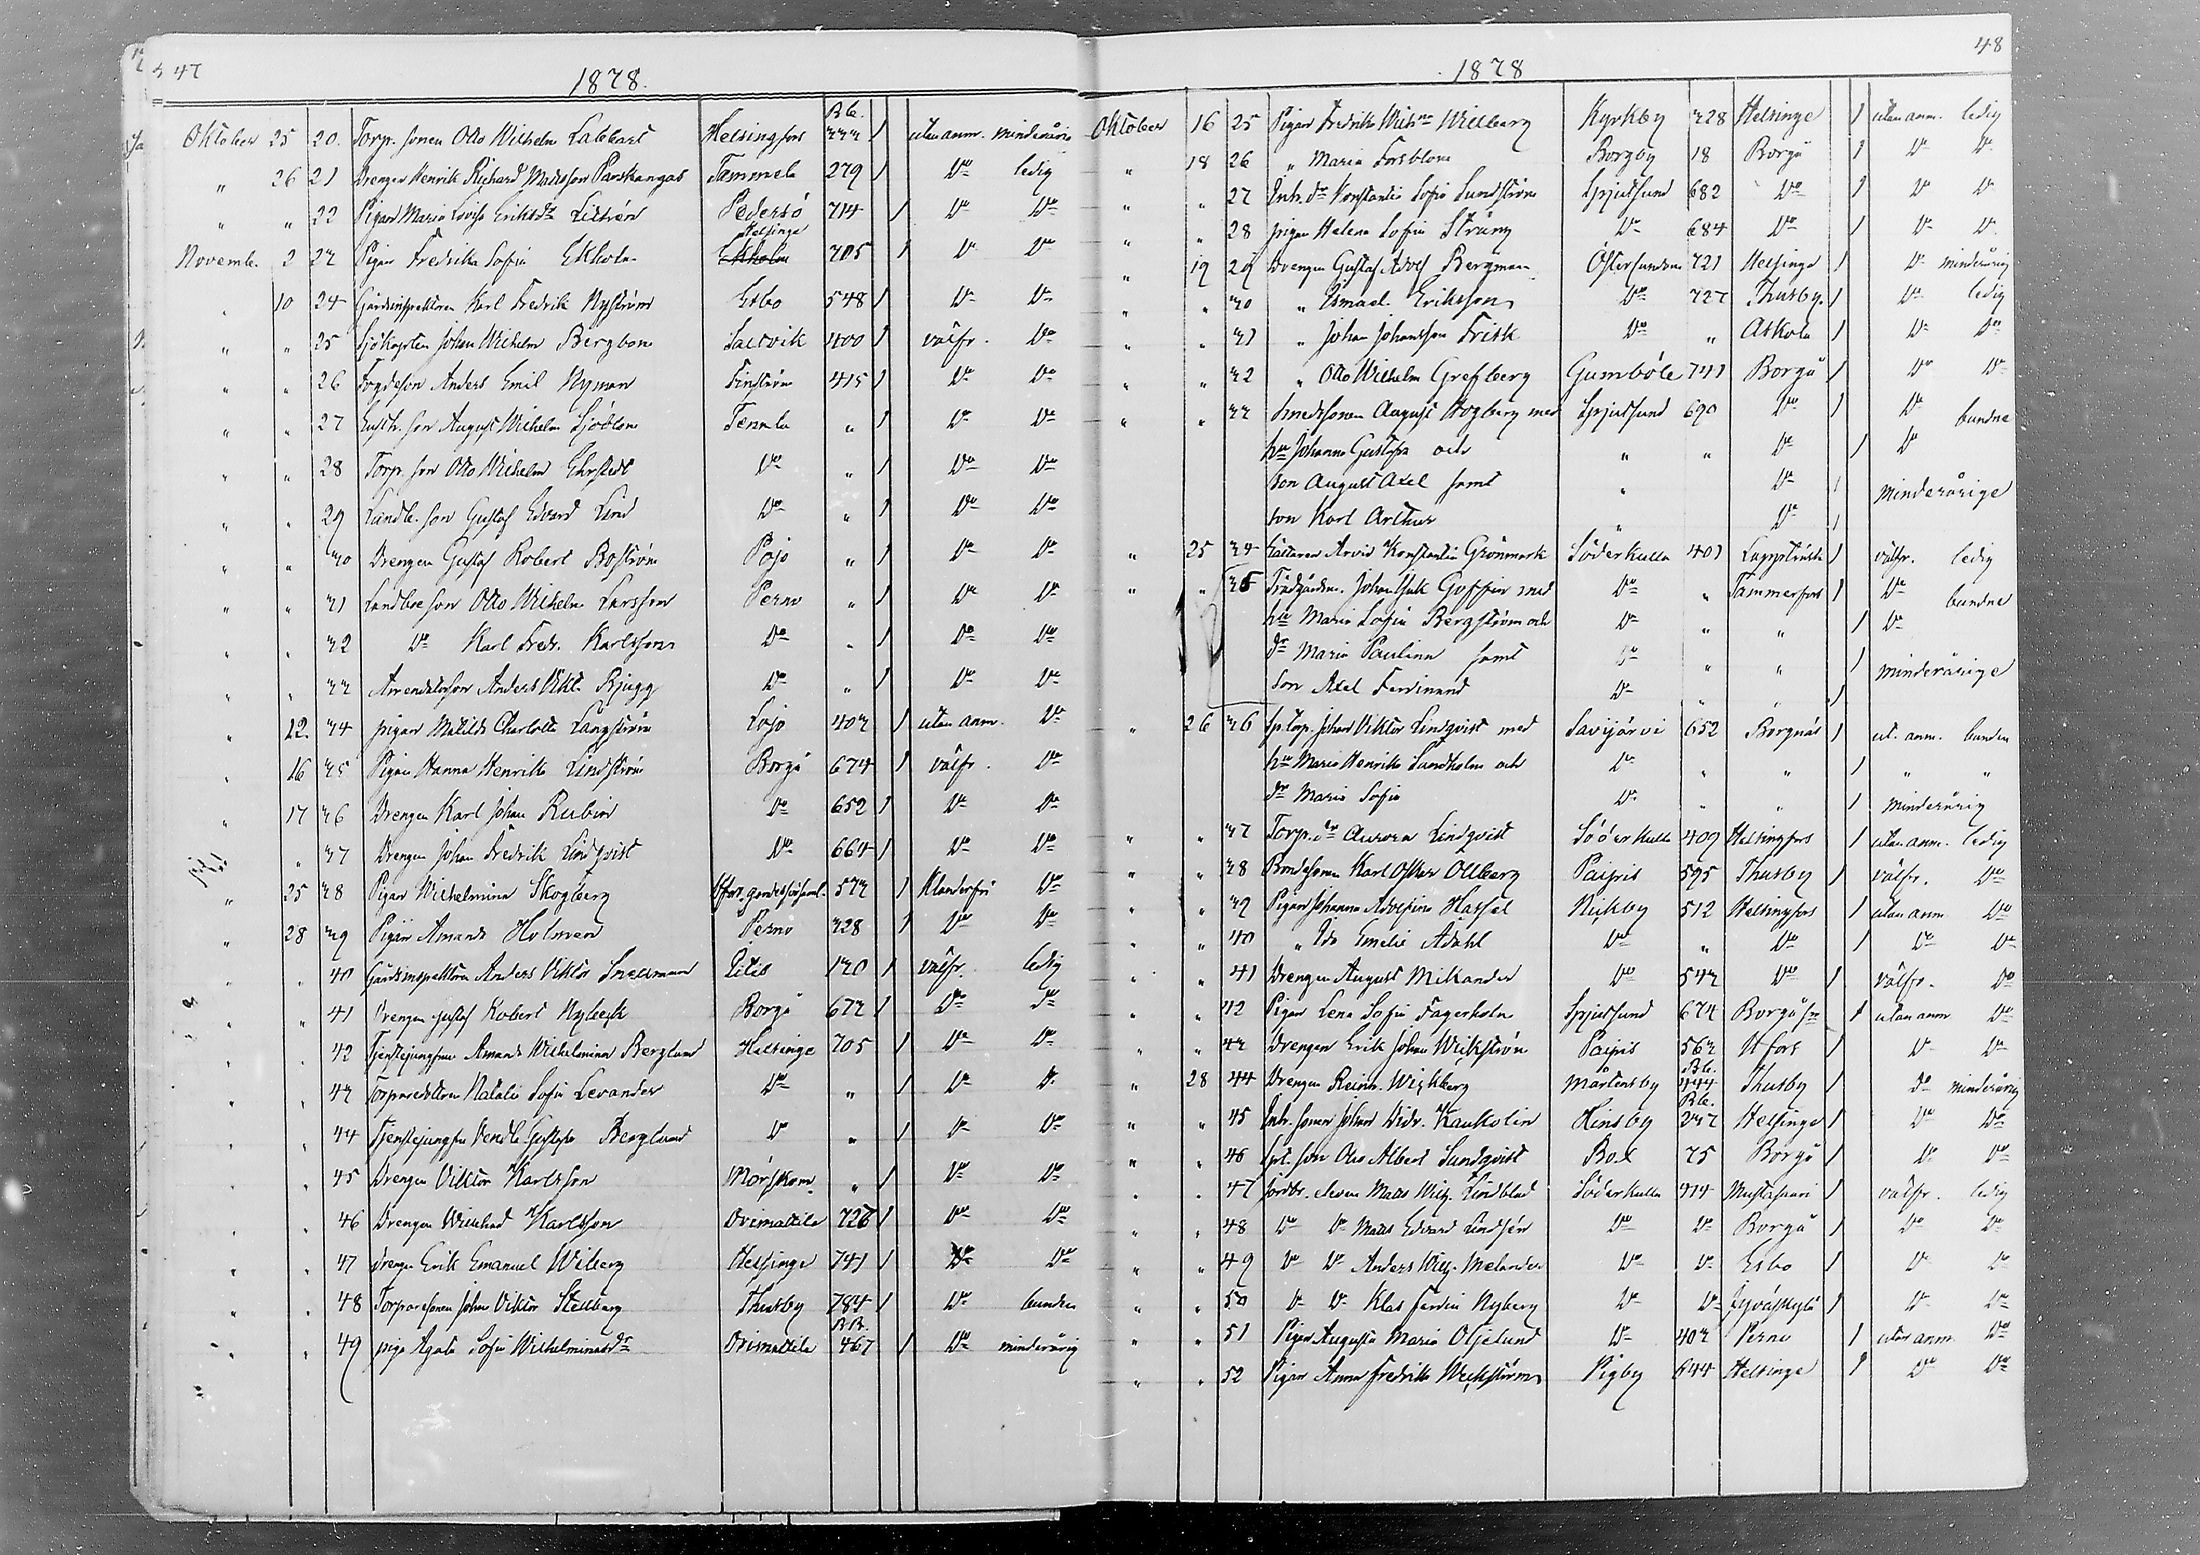 47
1878.
Oktober 25 20. Torp. sonen Otto Wilhelm Helsingfors Bb. 333 1 utan anm. minderårig
" 26 21 Drengen Henrik Richard Mattsson Tammela 279 1 Do ledig
" " 22 Pigan Maria Lovisa Eriksdr Pedersö 714 1 Do Do
Novemb. 2 23 Pigan Fredrika Sofia Ekholm Helsinge 705 1 Do Do
" 10 24 Gårdsinspektoren Karl Fredrik Nyström Esbo 548 1 Do Do
" " 25 Sjökapten Johan Wilhelm Bergbom Saltvik 400 1 välfr. Do
" " 26 Fogdeson Anders Emil Nyman Finström 415 1 Do Do
" " 27 son August Wilhelm Sjöblom Tenala " 1 Do Do
" " 28 Torp. son Otto Wilhelm Ehrstedt Do " 1 Do Do
" " 29 Landb. son Gustaf Edvard Lind Do " 1 Do Do
" " 30 Drengen Gustaf Robert Boström Pojo " 1 Do Do
" " 31 Landboeson Otto Wilhelm Larsson Perno " 1 Do Do
" " 32 Do Karl Fredr. Karlsson Do " 1 Do Do
" " 33 Arrendatorson Anders Vikt. Bjugg Do " 1 Do Do
" 12. 34 pigan Matilda Charlotta Långström Lojo 403 1 utan anm. Do
" 16 35 Pigan Hanna Henrika Lindström Borgå 674 1 välfr. Do
" 17 36 Drengen Karl Johan Rubin Do 652 1 Do Do
" " 37 Drengen Johan Fredrik Lindqvist Do 664 1 Do Do
" 25 38 Pigan Wilhelmina Skogberg 573 1 Klanderfri Do
" 28 39 Pigan Amanda Holmen Perno 328 1 Do Do
" " 40 Gårdsinspektoren Anders Viktor Snellman 130 1 välfr. ledig
" " 41 Drengen Gustaf Robert Nybeck Borgå 673 1 Do Do
" " 42 Tjenstejungfrun Amanda Wilhelmina Berglund Helsinge 705 1 Do Do
" " 43 Torparedottren Natalia Sofia Levander Do " 1 Do Do
" " 44 Tjenstejungfru Vendla Gustafva Berglund Do " 1 Do Do
" " 45 Drengen Viktor Karlsson Mörskom " 1 Do Do
" " 46 Drengen Willehad Karlsson Orimattila 726 1 Do Do
" " 47 drengen Erik Emanuel Wiberg Helsinge 741 1 Do Do
" " 48 Torparesonen Johan Viktor Stellberg Thusby 784 1 Do bunden
" " 49 piga Agata Sofia Wilhelminasdr Orimattila Bb. 467 1 Do minderårig
48
1878
Oktober 16 25 Pigan Fredrika Willberg Kyrkby 328 Helsinge 1 utan anm. ledig
" 18 26 " Maria Forsblom Borgby 18 Borgå 1 Do Do
" " 27 Inh. dr Konstantia Sofia Lundström Spjutsund 682 Do 1 Do Do
" " 28 pigan Helena Sofia Strång Do 684 Do 1 Do Do
" 19 29 Drengen Gustaf Adolf Bergman Östersundom 721 Helsinge 1 Do minderårig
" " 30 " Ismael Eriksson Do 727 Thusby. 1 Do ledig
" " 31 " Johan Johansson Frisk Do " Askola 1 Do Do
" " 32 " Otto Wilhelm Grefberg Gumböle 741 Borgå 1 Do Do
" " 33 Smedssonen August Hogberg med Spjutsund 690 Do 1 Do bundne
hu Johanna Gustafva och " " Do 1 Do
son August Axel samt " Do 1 minderårige
son Karl Arthur " Do 1
" 25 34 Arvid Konstantin Grönmark Söderkulla 401 Lappträsk 1 välfr. ledig
" " 35 Trädgårdsm. Johan Isak Goffin med Do " Tammerfors 1 Do bundne
hu Maria Sofia Bergström och Do " " 1 Do
dr Maria Paulina samt Do " " 1 minderårige
son Axel Ferdinand Do " " 1
" 26 36 Sp. torp. Johan Viktor Lindqvist med Savijärvi 652 Borgnäs 1 ut. anm. bunden
hu Maria Henrika Sundholm och Do " " 1 " "
dr Maria Sofia Do " " 1 minderårig
" " 37 Torp. dr Aurora Lindqvist Söderkulla 409 Helsingfors 1 utan anm. ledig
" " 38 Bondesonen Karl Oskar Ollberg Paipis 595 Thusby 1 välfr. Do
" " 39 Pigan Johanna Adolfina Hassel Nickby 512 Helsingfors 1 utan anm Do
" " 40 " Ida Emelie Adahl Do " Do 1 Do Do
" " 41 Drengen August Mikander Do 543 Do 1 välfr. Do
" " 42 Pigan Lena Sofia Fagerholm Spjutsund 674 Borgå 1 utan anm Do
" " 43 Drengen Erik Johan Weckström Paipis 563 H fors 1 Do Do
" 28 44 Drengen Reinh. Wickberg Mårtensby Bb. 444 Thusby 1 Do minderårig
" " 45 Inh. sonen Johan Widr. Kaukolin Hindsby Bb. 247 Helsinge 1 Do Do
" " 46 Spt. son Otto Albert Sundqvist Box 75 Borgå 1 Do Do
" " 47 Jordbr. eleven Matts Wilh. Lindblad Söderkulla 414 Mustasaari 1 välfr. ledig
" " 48 Do Do Matts Edvard Lindsén Do Do Borgå 1 Do Do
" " 49 Do Do Anders Wilh. Melander Do Do Esbo 1 Do Do
" " 50 Do Do Klas Ferdin Nyberg Do Do Jyväskylä 1 Do Do
" " 51 Pigan Augusta Maria Öljelund Do 403 Perno 1 utan anm. Do
" " 52 Pigan Anna Fredrika Weckström Pigby 644 Helsinge 1 Do Do